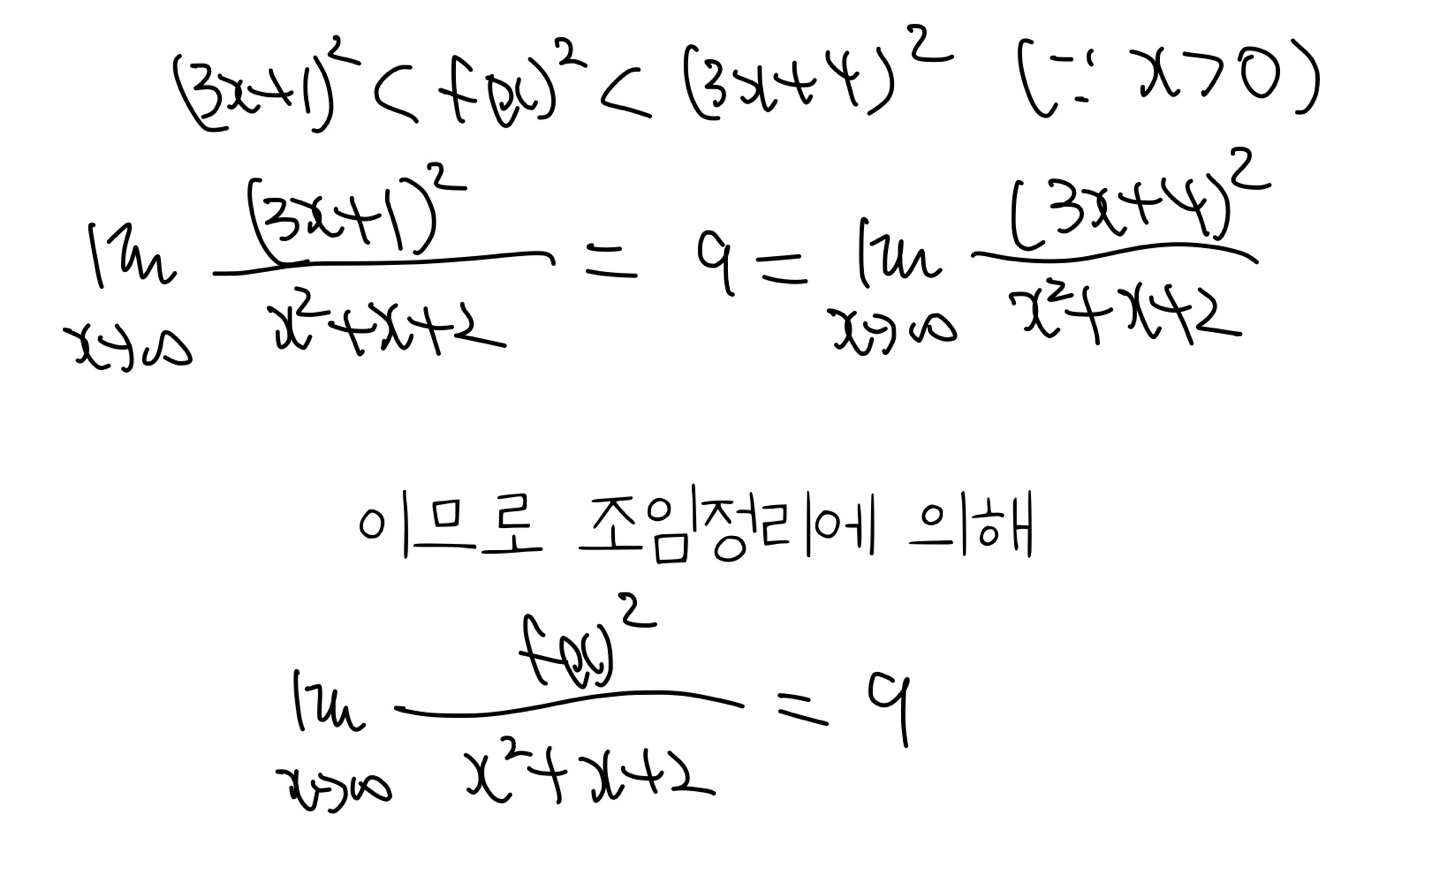 (3x+1)² < f(x)² < (3x+4)² (∵ x>0)
lim_{x→∞} (3x+1)²/(x²+x+2) = 9 = lim_{x→∞} (3x+4)²/(x²+x+2)
이므로 조임정리에 의해
lim_{x→∞} f(x)²/(x²+x+2) = 9